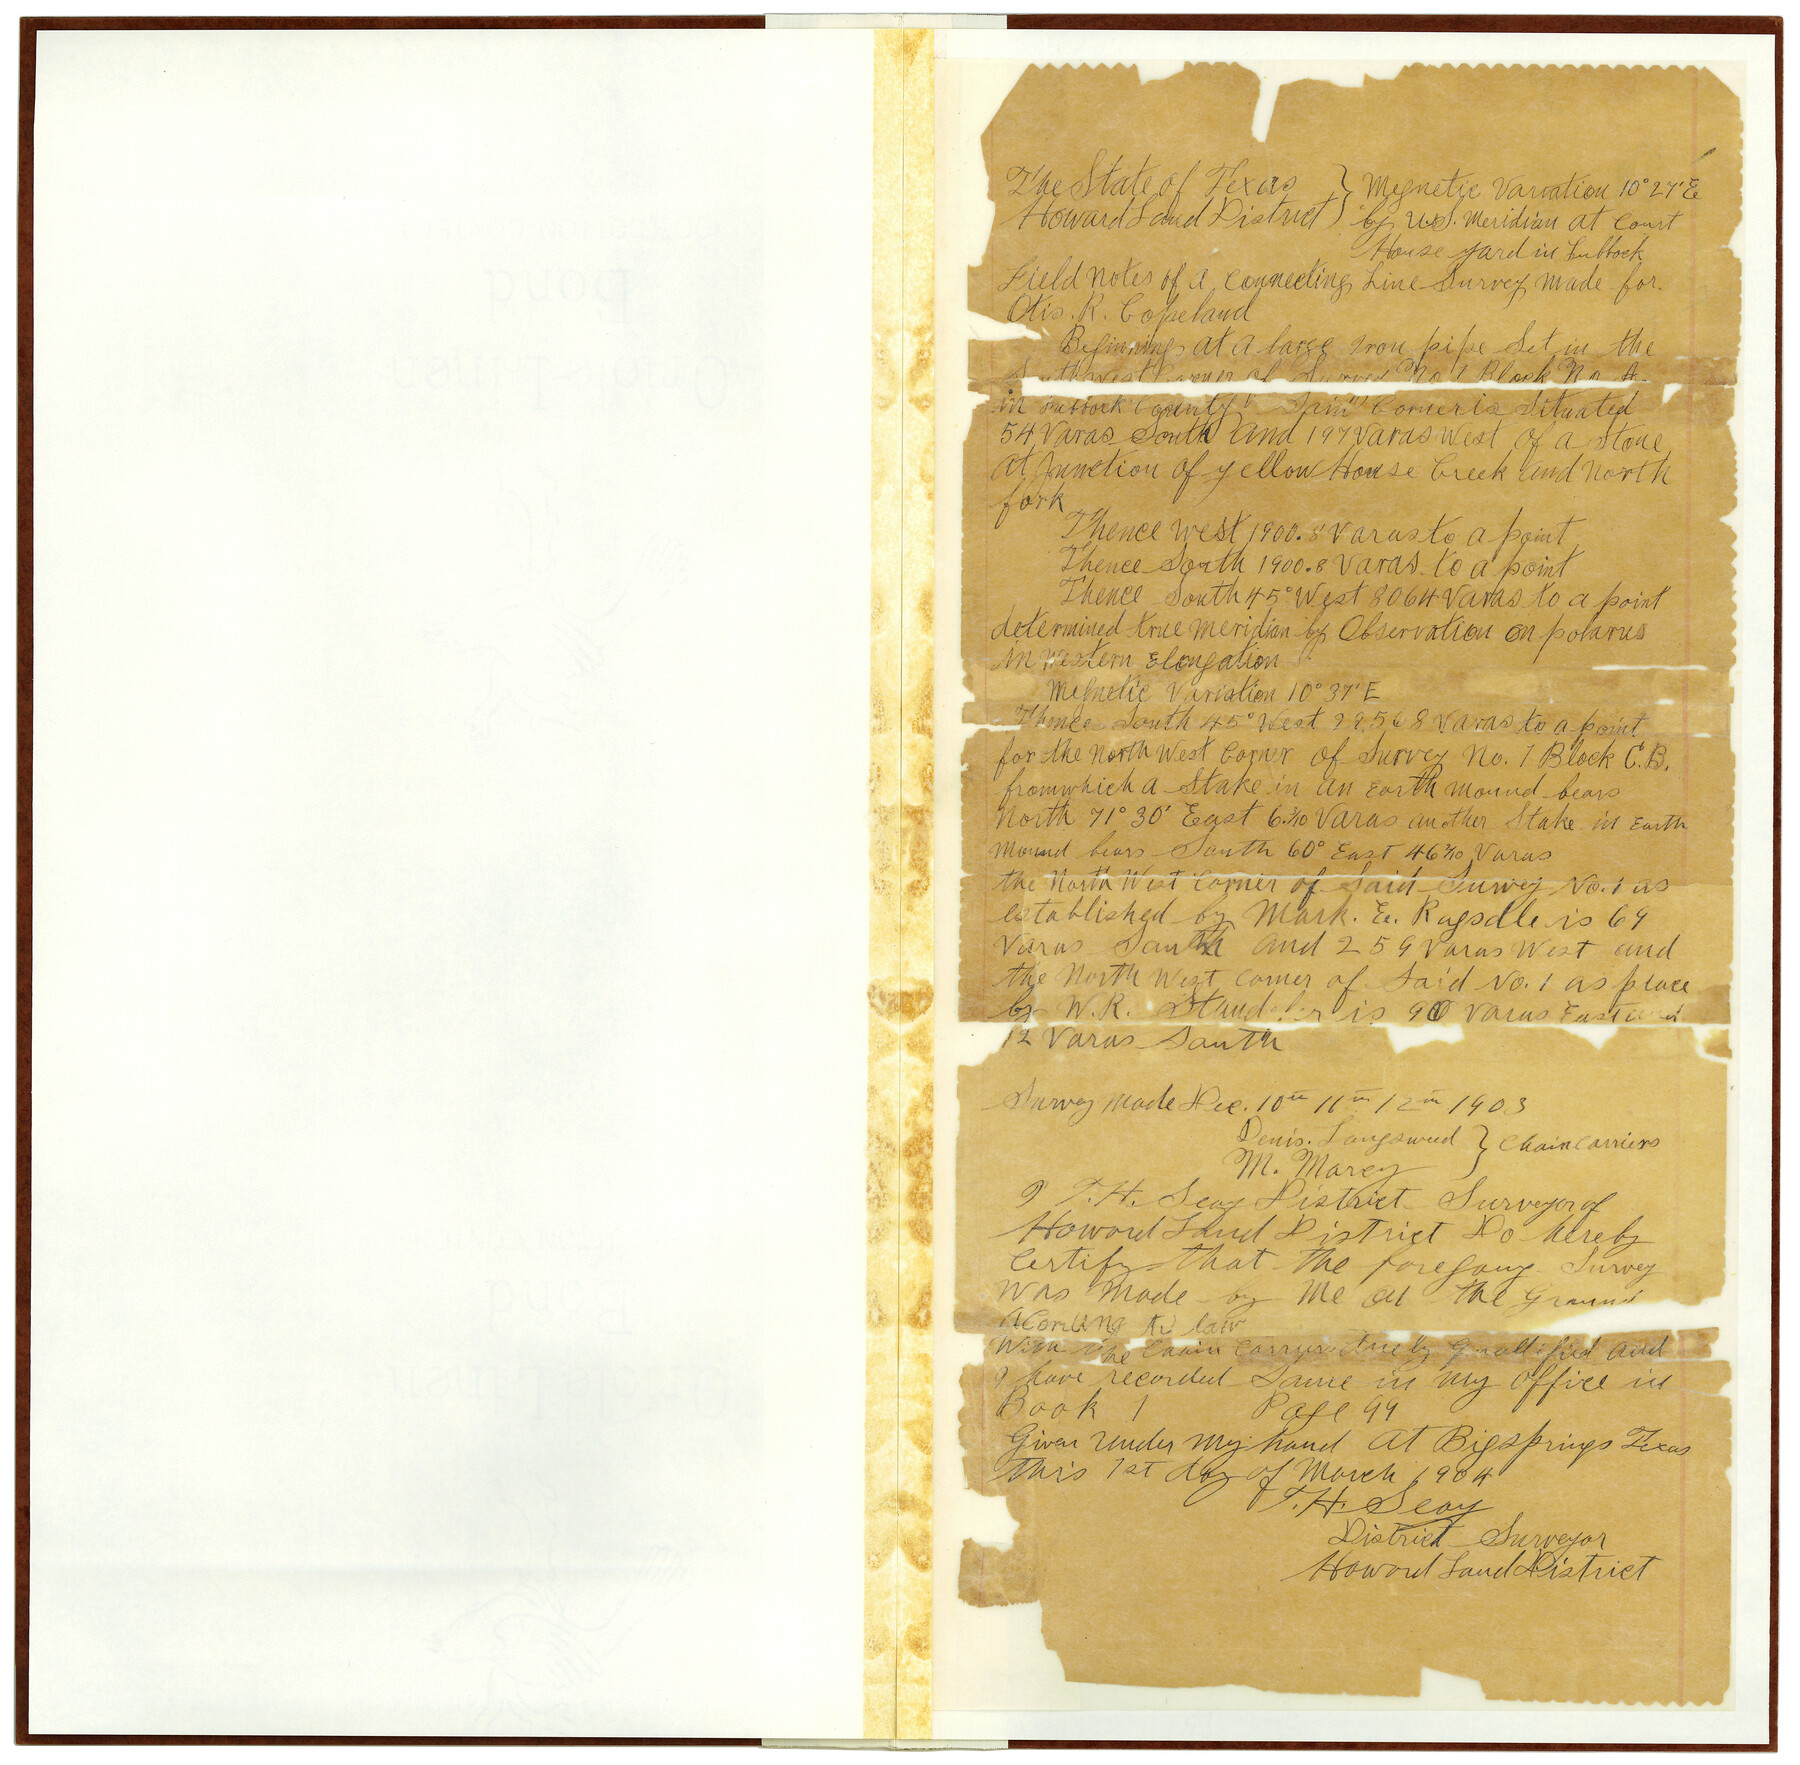 The State of Texas } Magnetic Variation 10° 27' E
Howard Land District } by U.S. Meridian at Court
House yard in Lubbock
Field notes of a Connecting Line Survey made for.
Otis. R. Copeland
Beginning at a large Iron pipe Set in the
South West Corner of Survey No 1 Block No A.
in Lubbock County Said Corner is Situated
54 Varas South and 197 Varas West of a Stone
at Junction of Yellow House Creek and North
fork
Thence West 1900.8 Varas to a point
Thence South 1900.8 Varas to a point
Thence South 45° West 8064 Varas to a point
determined true meridian by Observation on polarus
in Western Elongation
Magnetic Variation 10° 37' E
Thence South 45° West 29568 Varas to a point
for the North West Corner of Survey No. 1 Block C.B.
from which a Stake in an Earth mound bears
North 71° 30' East 6 3/10 Varas another Stake in Earth
mound bears South 60° East 46 2/10 Varas
the North West Corner of Said Survey No. 1 as
established by Mark. E. Ragsdle is 69
Varas South and 259 Varas West and
the North West Corner of Said No. 1 as place
by W.R. is 90 Varas East and
12 Varas South
Survey made Dec. 10th 11th 12th 1903
Denis. } Chain Carriers
M. Marcy }
I T.H. Seay District Surveyor of
Howard Land District Do hereby
Certify that the foregoing Survey
was made by me on the Ground
according to law
With the Chain Carriers duely quallified and
I have recorded Same in my office in
Book 1 Page 99
Given under my hand at Bigsprings Texas
this 1st day of March 1904
T.H. Seay
District Surveyor
Howard Land District